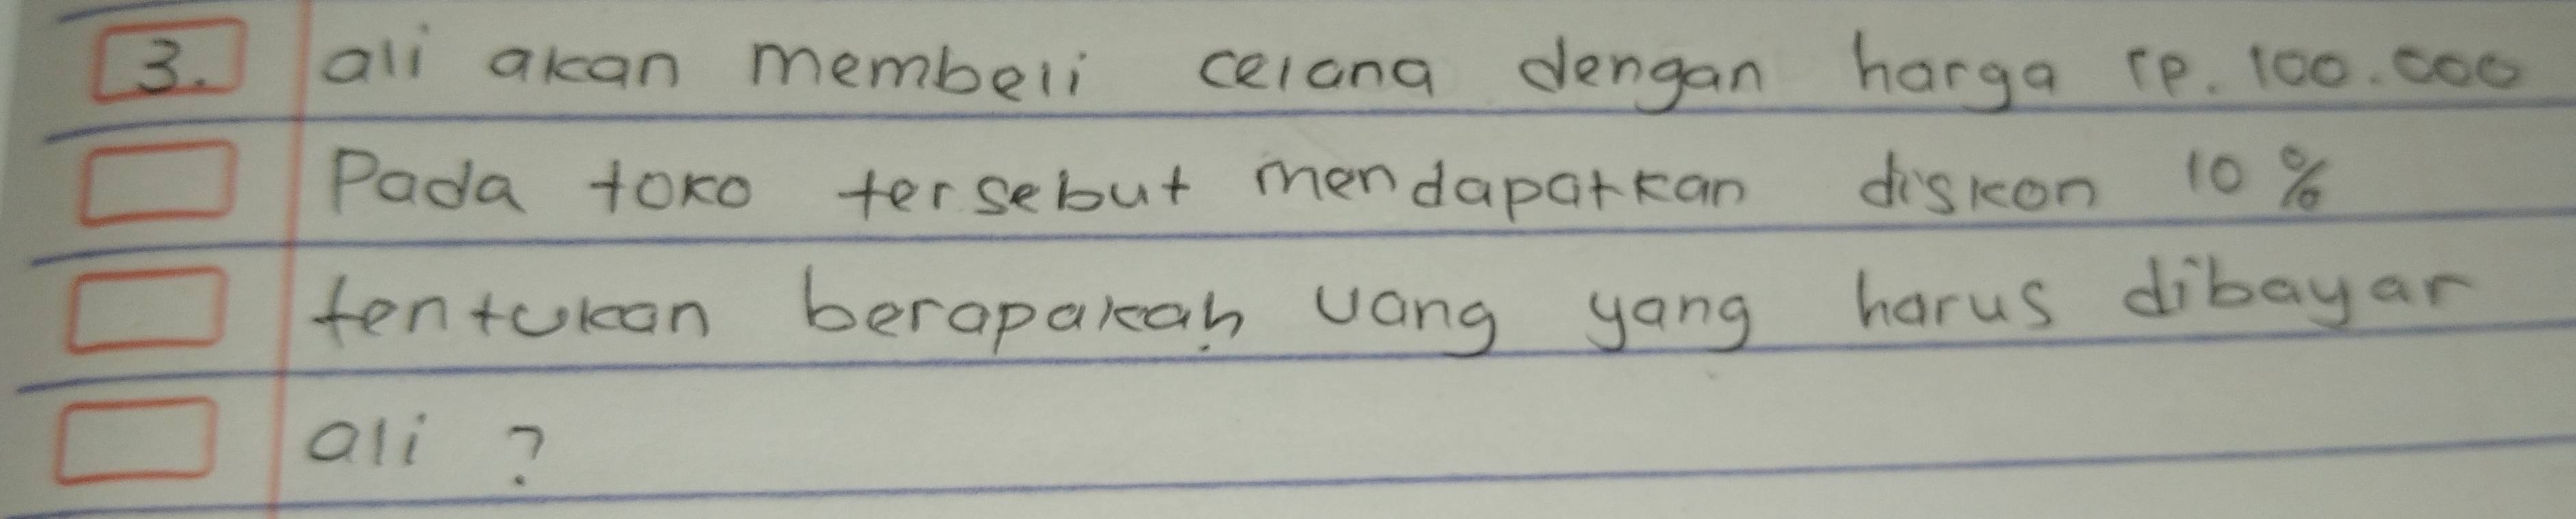 3. ali akan membeli celana dengan harga rp. 100.000
Pada toko tersebut mendapatkan diskon 10%
tentukan berapakah uang yang harus dibayar
ali ?